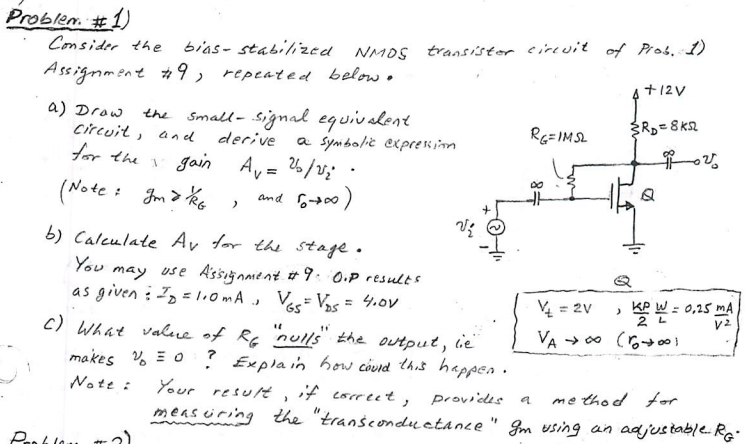 Problem. #1)
Consider the bias-stabilized NMOS transistor circuit of Prob. 1)
Assignment #9, repeated below.
+12V
a) Draw the small-signal equivalent
circuit, and derive a symbolic expression
for the gain Av = vo/vi .
(Note: gm ≥ 1/RG , and ro→∞)
RG=1MΩ
RD=8KΩ
∞
vo
∞
Q
+
vi
-
b) Calculate Av for the stage.
You may use Assignment #9 O.P results
as given: ID = 1.0mA, VGS = VDS = 4.0V
Q
Vt = 2V , KP/2 W/L = 0.25 mA/V2
VA → ∞ (ro→∞)
c) What value of RG "nulls" the output, ie
makes vo ≡ 0 ? Explain how could this happen.
Note: Your result, if correct, provides a method for
measuring the "transconductance" gm using an adjustable RG.